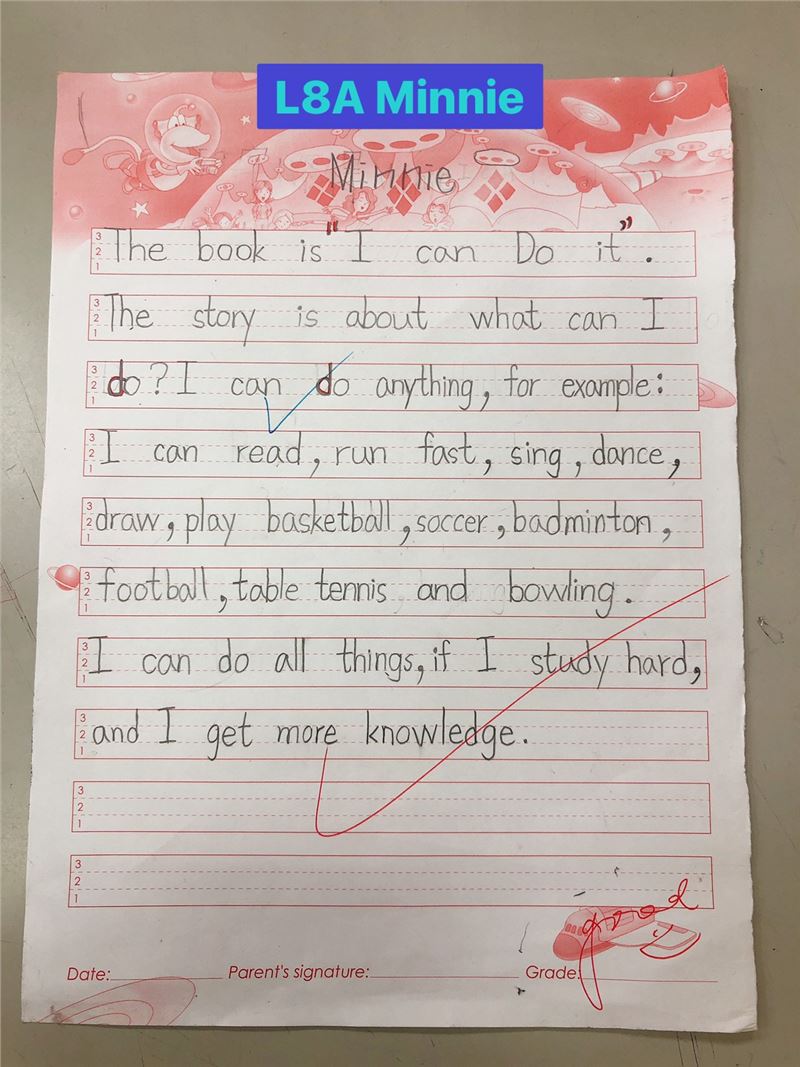 L8A Minnie
Minnie
The book is "I can Do it".
The story is about what can I
do? I can do anything, for example:
I can read, run fast, sing, dance,
draw, play basketball, soccer, badminton,
football, table tennis and bowling.
I can do all things, if I study hard,
and I get more knowledge.
good
Date: Parent's signature: Grade: